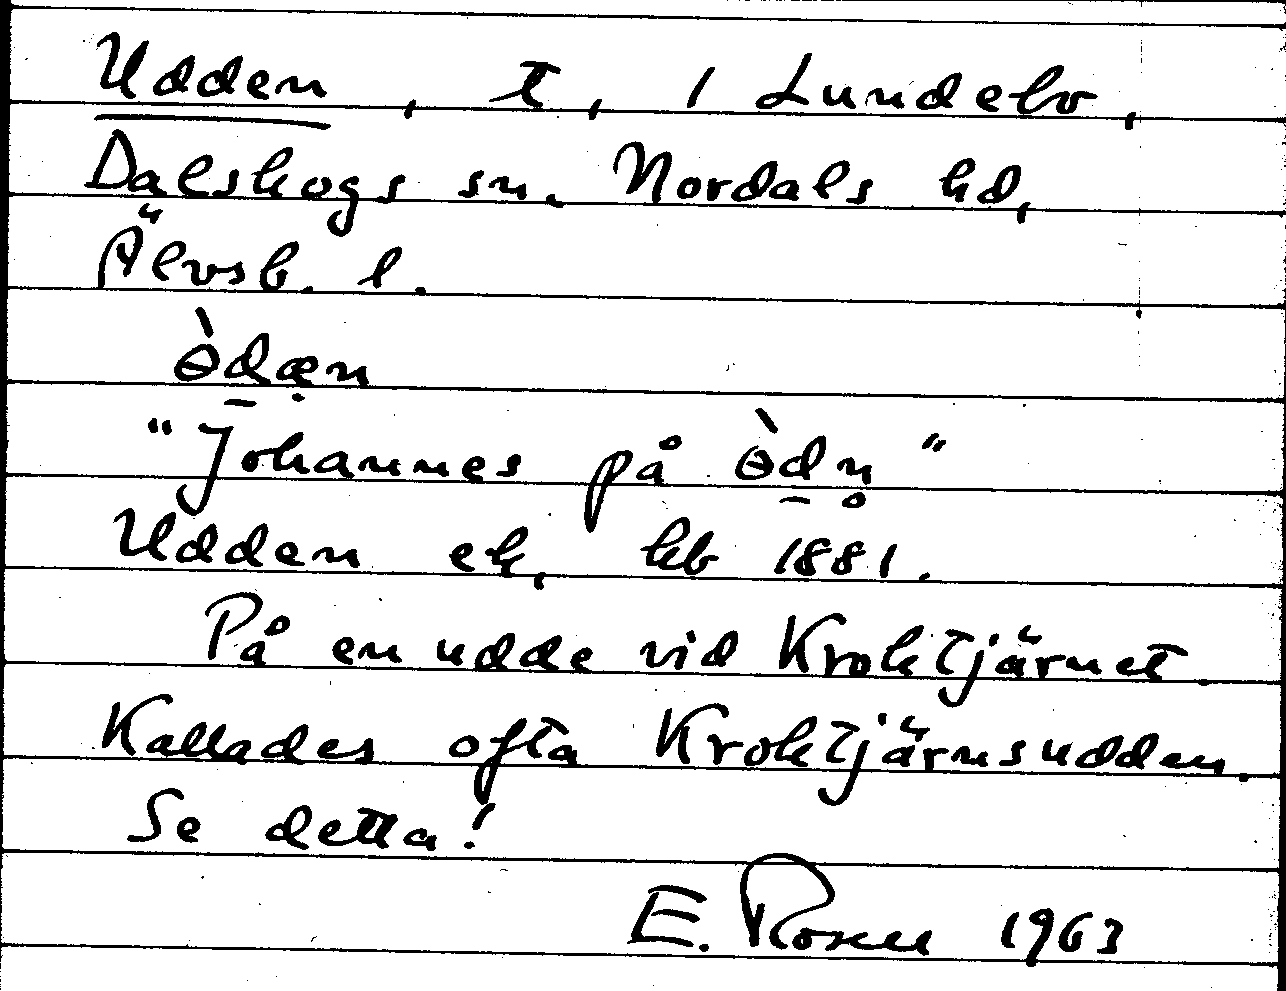 Udden, t, / Lundebo,
Dalskogs sn. Nordals hd,
Älvsb. l.
ɵ̀d̠æ̣n
"Johannes på ɵ̀d̠n̥"
Udden ek, kb 1881.
På en udde vid Kroktjärnet.
Kallades ofta Kroktjärnsudden.
Se detta!
E. Rosell 1963